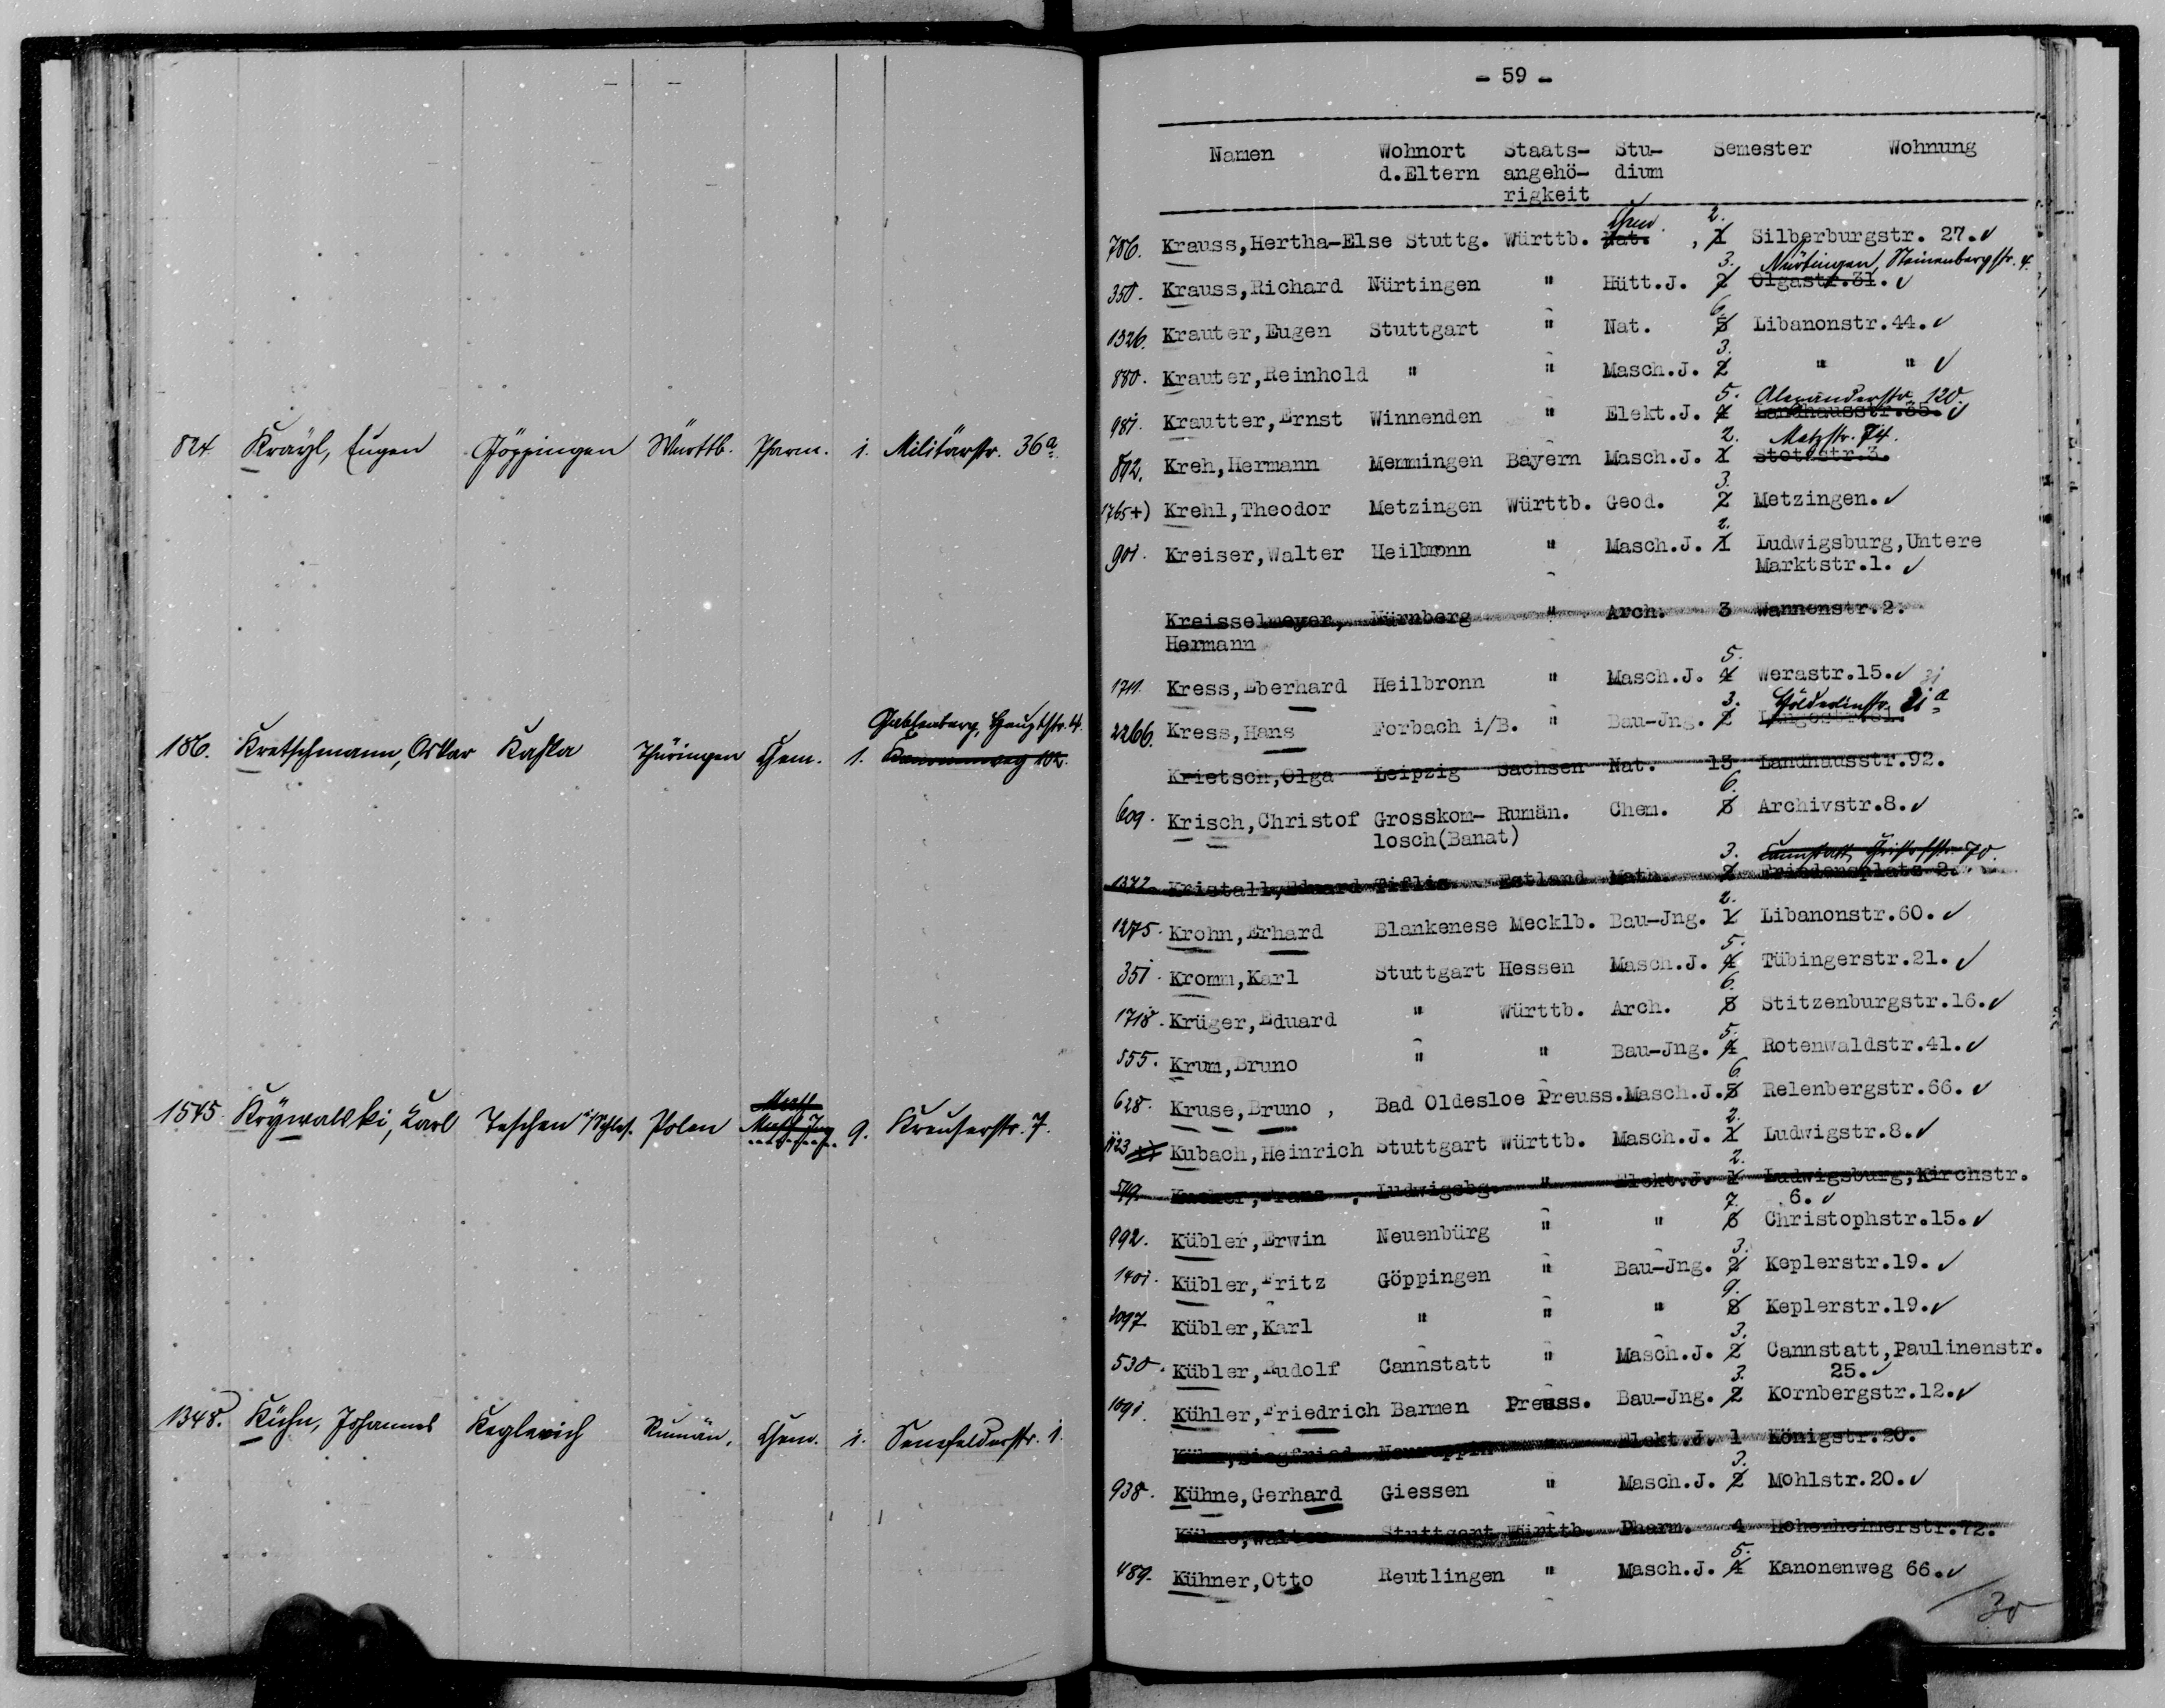 824 Krayl, Eugen Göppingen Württb. Pharm. 1. Militärstr. 36a.
Gablenberg, Hauptstr. 4.
186. Kretschmann, Oskar Kahla Thüringen Chem. 1. Kanonenweg 102.
1545. Krywalski, Karl Teschen i/Schles. Polen 9. Kreuserstr. 7.
1348. Kühn, Johannes Keglevich Rumän. Chem. 1. Senefelderstr. 1.
- 59 -
Namen Wohnort Staats- Stu- Semester Wohnung
d.Eltern angehö- dium
rigkeit
Chem. 2.
786. Krauss,Hertha-Else Stuttg. Württb. Nat. , 1 Silberburgstr. 27.✓
3. Nürtingen, Steinenbergstr. 4.
350. Krauss,Richard Nürtingen " Hütt.J. 2 Olgastr.31.✓
6.
1326. Krauter,Eugen Stuttgart " Nat. 5 Libanonstr.44.✓
3.
880. Krauter,Reinhold " " Masch.J. 2 " " ✓
5. Alexanderstr. 120.
981. Krautter,Ernst Winnenden " Elekt.J. 4 Landhausstr.35.✓
2. Metzstr. 74.
802. Kreh,Hermann Memmingen Bayern Masch.J. 1 Stotzstr.3.
3.
1765+) Krehl,Theodor Metzingen Württb. Geod. 2 Metzingen.✓
2.
901. Kreiser,Walter Heilbronn " Masch.J. 1 Ludwigsburg,Untere
Marktstr.1. ✓
Kreisselmeyer, Nürnberg " Arch. 3 Wannenstr.2.
Hermann
5.
1711. Kress,Eberhard Heilbronn " Masch.J. 4 Werastr.15.✓
3. Hölderlinstr. 21a
2266. Kress,Hans Forbach i/B. " Bau-Jng. 2
Krietsch,Olga Leipzig Sachsen Nat. 13 Landhausstr.92.
6.
609. Krisch,Christof Grosskom- Rumän. Chem. 5 Archivstr.8.✓
losch(Banat)
3. Cannstatt, Christofstr. 70.
1372. Kristall,Eduard Tiflis Estland Math. 2 Friedensplatz 2.
2.
1275. Krohn,Erhard Blankenese Mecklb. Bau-Jng. 1 Libanonstr.60.✓
5.
351. Kromm,Karl Stuttgart Hessen Masch.J. 4 Tübingerstr.21. ✓
6.
1718. Krüger,Eduard " Württb. Arch. 5 Stitzenburgstr.16.✓
5.
555. Krum,Bruno " " Bau-Jng. 4 Rotenwaldstr.41.✓
6
628. Kruse,Bruno , Bad Oldesloe Preuss.Masch.J.5 Relenbergstr.66.✓
2.
Kubach,Heinrich Stuttgart Württb. Masch.J. 1 Ludwigstr.8.✓
2.
549. Ludwigsbg. " Elekt.J. 1 Ludwigsburg,Kirchstr.
7. 6.✓
992. Kübler,Erwin Neuenbürg " " 6 Christophstr.15.✓
3.
1401. Kübler,Fritz Göppingen " Bau-Jng. 2 Keplerstr.19. ✓
9.
1097. Kübler,Karl " " " 8 Keplerstr.19.✓
3.
530. Kübler,Rudolf Cannstatt " Masch.J. 2 Cannstatt,Paulinenstr.
3. 25.✓
1091. Kühler,Friedrich Barmen Preuss. Bau-Jng. 2 Kornbergstr.12.✓
Kühn,Siegfried Neuruppin " Elekt.J. 1 Königstr.20.
3.
938. Kühne,Gerhard Giessen " Masch.J. 2 Mohlstr.20.✓
Kühne,Walter Stuttgart Württb. Pharm. 4 Hohenheimerstr.72.
5.
489. Kühner,Otto Reutlingen " Masch.J. 4 Kanonenweg 66.✓
30